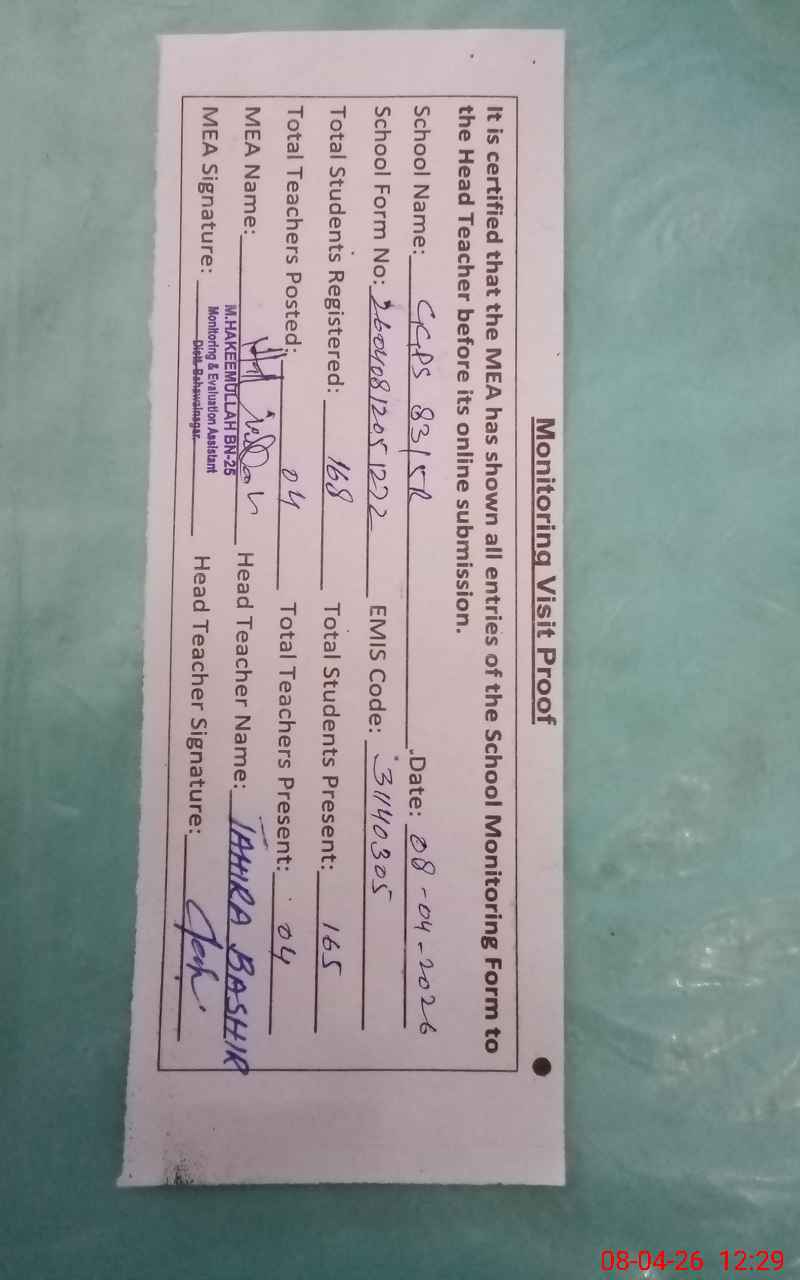 Monitoring Visit Proof
It is certified that the MEA has shown all entries of the School Monitoring Form to
the Head Teacher before its online submission.
School Name: GGPS 83/5R Date: 08-04-2026
School Form No: 26040812051272 EMIS Code: 31140305
Total Students Registered: 168 Total Students Present: 165
Total Teachers Posted: 04 Total Teachers Present: 04
MEA Name: Head Teacher Name: TAHIRA BASHIR
M.HAKEEMULLAH BN-25
Monitoring & Evaluation Assistant
Distt. Bahawalnagar.
MEA Signature: Head Teacher Signature:
08-04-26 12:29